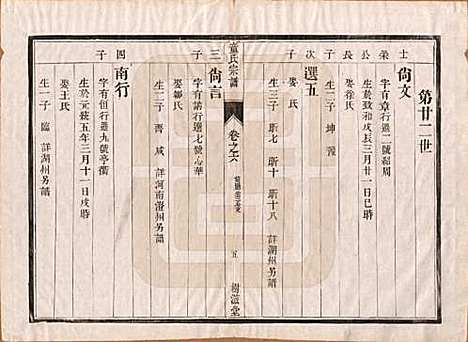 第廿二世
士榮公長子
尚文
字有章行選二號
生於致和戊辰三月廿一日巳時
娶徐氏
生二子 坤
次子
選五
娶 氏
生三子 斯七 斯十 斯十八 詳湖州另譜
童氏宗譜
卷之六
五
樹滋堂
三子
尚言
字有訥行選七號心華
娶鄒氏
生二子 詳河南
四子
南行
字有恒行選九號亭周
生於元統五年三月十一日戌時
娶王氏
生一子 臨 詳湖州另譜